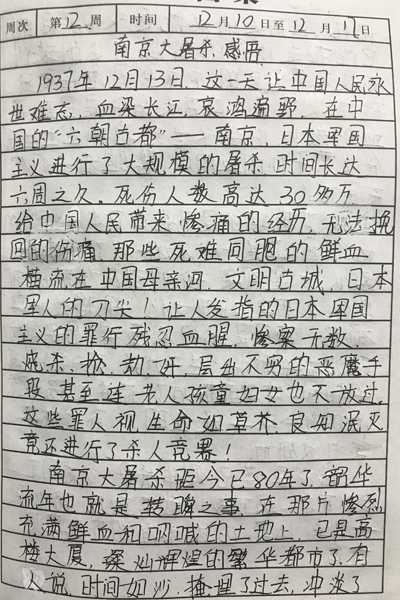 周次 第12周 时间 12月10日至12月17日
南京大屠杀感悟
1937年12月13日,这一天让中国人民永
世难忘,血染长江,哀鸿遍野,在中
国的“六朝古都”——南京,日本军国
主义进行了大规模的屠杀时间长达
六周之久,死伤人数高达30多万
给中国人民带来惨痛的经历,无法挽
回的伤痛,那些死难同胞的鲜血
横流在中国母亲河,文明古城,日本
军人的刀尖!让人发指的日本军国
主义的罪行残忍血腥,惨案无数,
烧、杀、抢、劫、奸,层出不穷的恶魔手
段,甚至连老人孩童妇女也不放过,
这些罪人视生命如草芥,良知泯灭
竟还进行了杀人竞赛!
南京大屠杀距今已80年了,韶华
流年也就是转瞬之事,在那片惨烈
充满鲜血和呐喊的土地上,已是高
楼大厦,璨灿辉煌的繁华都市了,有
人说,时间如沙,掩埋了过去,冲淡了